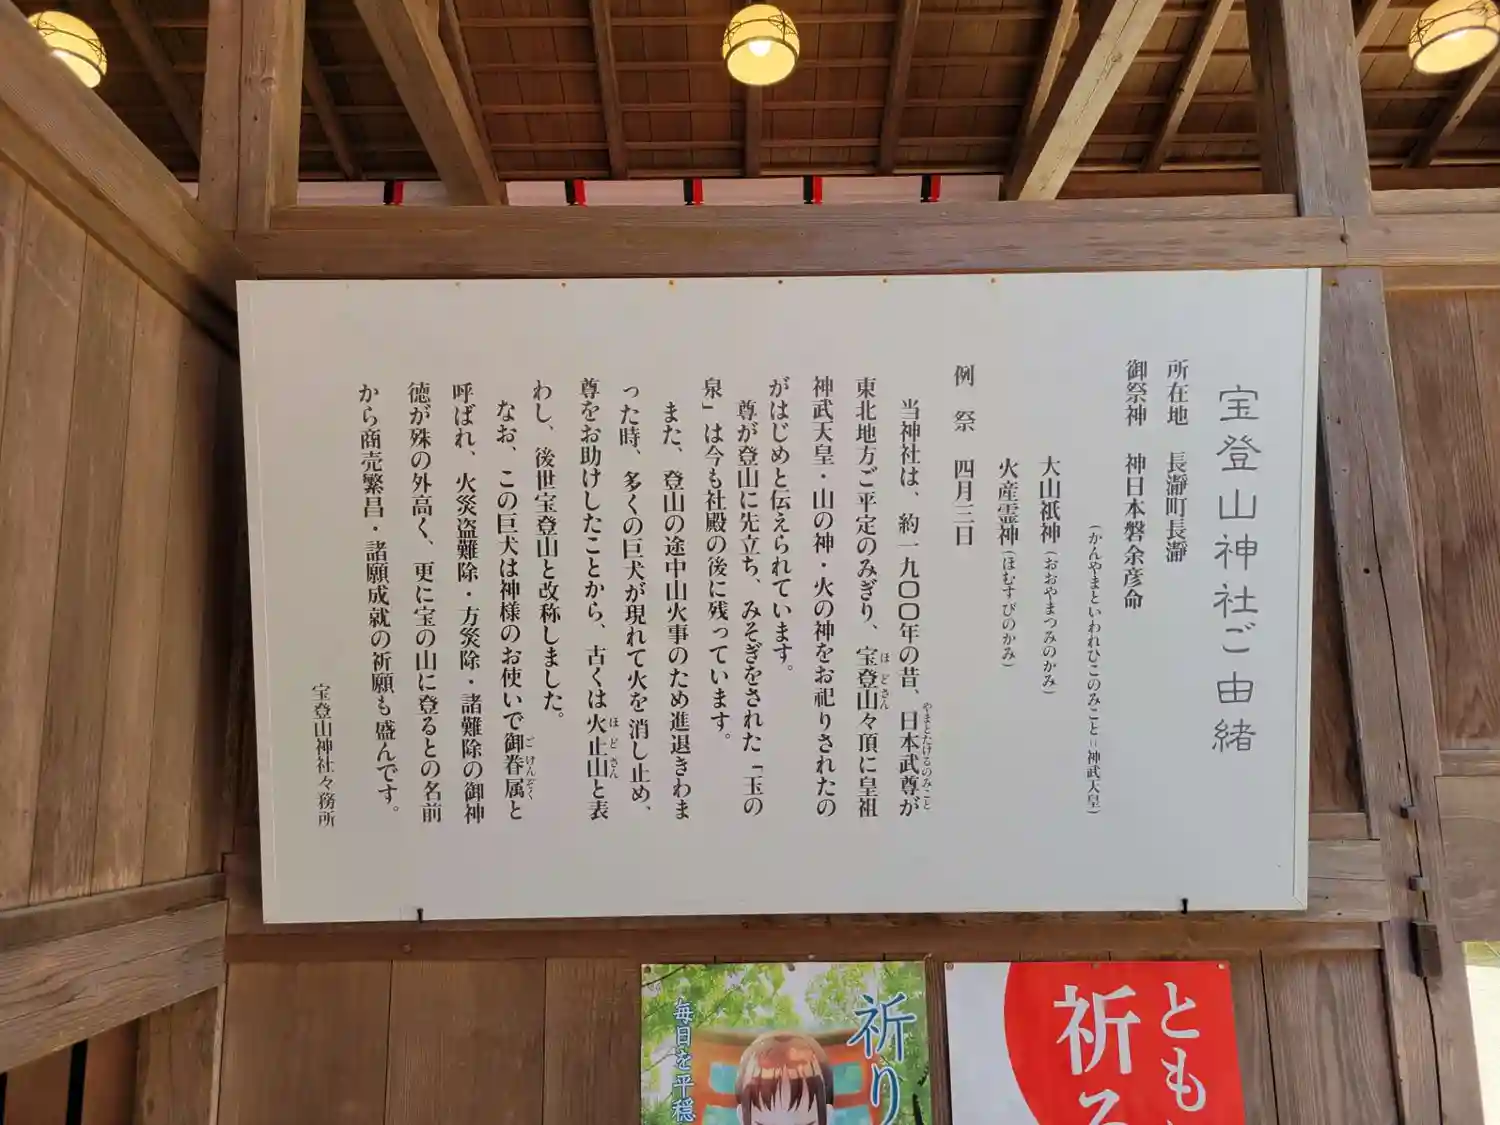 宝登山神社ご由緒
所在地　長瀞町長瀞
御祭神　神日本磐余彦命
（かんやまといわれひこのみこと＝神武天皇）
大山祇神（おおやまつみのかみ）
火産霊神（ほむすびのかみ）
例　祭　四月三日
当神社は、約一九〇〇年の昔、日本武尊が
やまとたけるのみこと
東北地方ご平定のみぎり、宝登山々頂に皇祖
ほどさん
神武天皇・山の神・火の神をお祀りされたの
がはじめと伝えられています。
尊が登山に先立ち、みそぎをされた「玉の
泉」は今も社殿の後に残っています。
また、登山の途中山火事のため進退きわま
った時、多くの巨犬が現れて火を消し止め、
尊をお助けしたことから、古くは火止山と表
ほどさん
わし、後世宝登山と改称しました。
なお、この巨犬は神様のお使いで御眷属と
ごけんぞく
呼ばれ、火災盗難除・方災除・諸難除の御神
徳が殊の外高く、更に宝の山に登るとの名前
から商売繁昌・諸願成就の祈願も盛んです。
宝登山神社々務所
祈り
毎日を平穏
とも
祈る